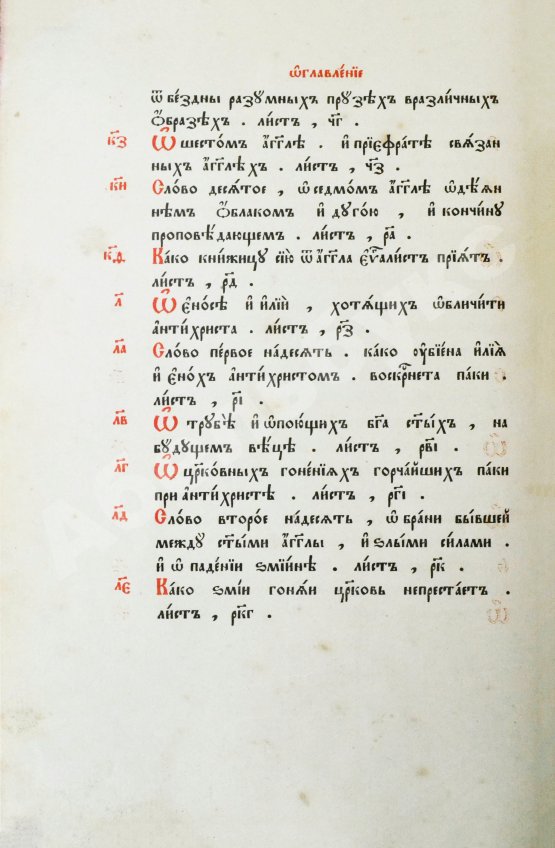 ѡ҆главле́нїе
ѿ бе́здны разꙋмныхъ прꙋзѣхъ вразли́чныхъ
Ѻ҆бразѣхъ . ли́стъ , ч҃г .
к҃з Ѡ҆ шесто́мъ а҆́гг҃лѣ . и҆ прїє҆фра́тѣ свѧ́зан
ныхъ а҆́гг҃лѣхъ . ли́стъ , ч҃з .
к҃и Сло́во десѧ́тое , ѡ҆ седмо́мъ а҆́гг҃лѣ ѡ҆дѣ́ѧн
нѣмъ Ѻ҆́блакомъ и҆ дꙋго́ю , и҆ кончи́нꙋ
проповѣ́дающемъ . ли́стъ , р҃а .
к҃ѳ Ка́ко кни́жицꙋ сїю̀ ѿ а҆́гг҃ла є҆ѵⷢ҇али́стъ прїѧ́тъ .
ли́стъ , р҃д .
л҃ Ѡ҆ є҆но́сѣ и҆ и҆лїѝ , хотѧ́щихъ ѡ҆бличи́ти
анти́христа . ли́стъ , р҃з .
л҃а Сло́во пе́рвое на́десѧть . ка́ко ᲂу҆бїе́на и҆лїѧ̀
и҆ є҆но́хъ анти́христомъ . воскрⷭ҇нета па́ки .
ли́стъ , р҃і .
л҃в Ѡ҆ трꙋбѣ̀ и҆ ѡ҆пою́щихъ бг҃а ст҃ы́хъ , на
бꙋ́дꙋщемъ вѣ́цѣ . ли́стъ , р҃ві .
л҃г Ѡ҆ цр҃ко́вныхъ гоне́нїѧхъ горча́йшихъ па́ки
при анти́христѣ . ли́стъ , р҃гі .
л҃д Сло́во второ́е на́десѧть , ѡ҆ бра́ни бы́вшей
междꙋ ст҃ы́ми а҆́гг҃лы , и҆ ѕлы́ми си́лами .
и҆ ѡ҆ паде́нїи ѕмїи́нѣ . ли́стъ , р҃к .
л҃є Ка́ко ѕмі́и гонѧ́и цр҃ковь непреста́етъ .
ли́стъ , р҃кг .